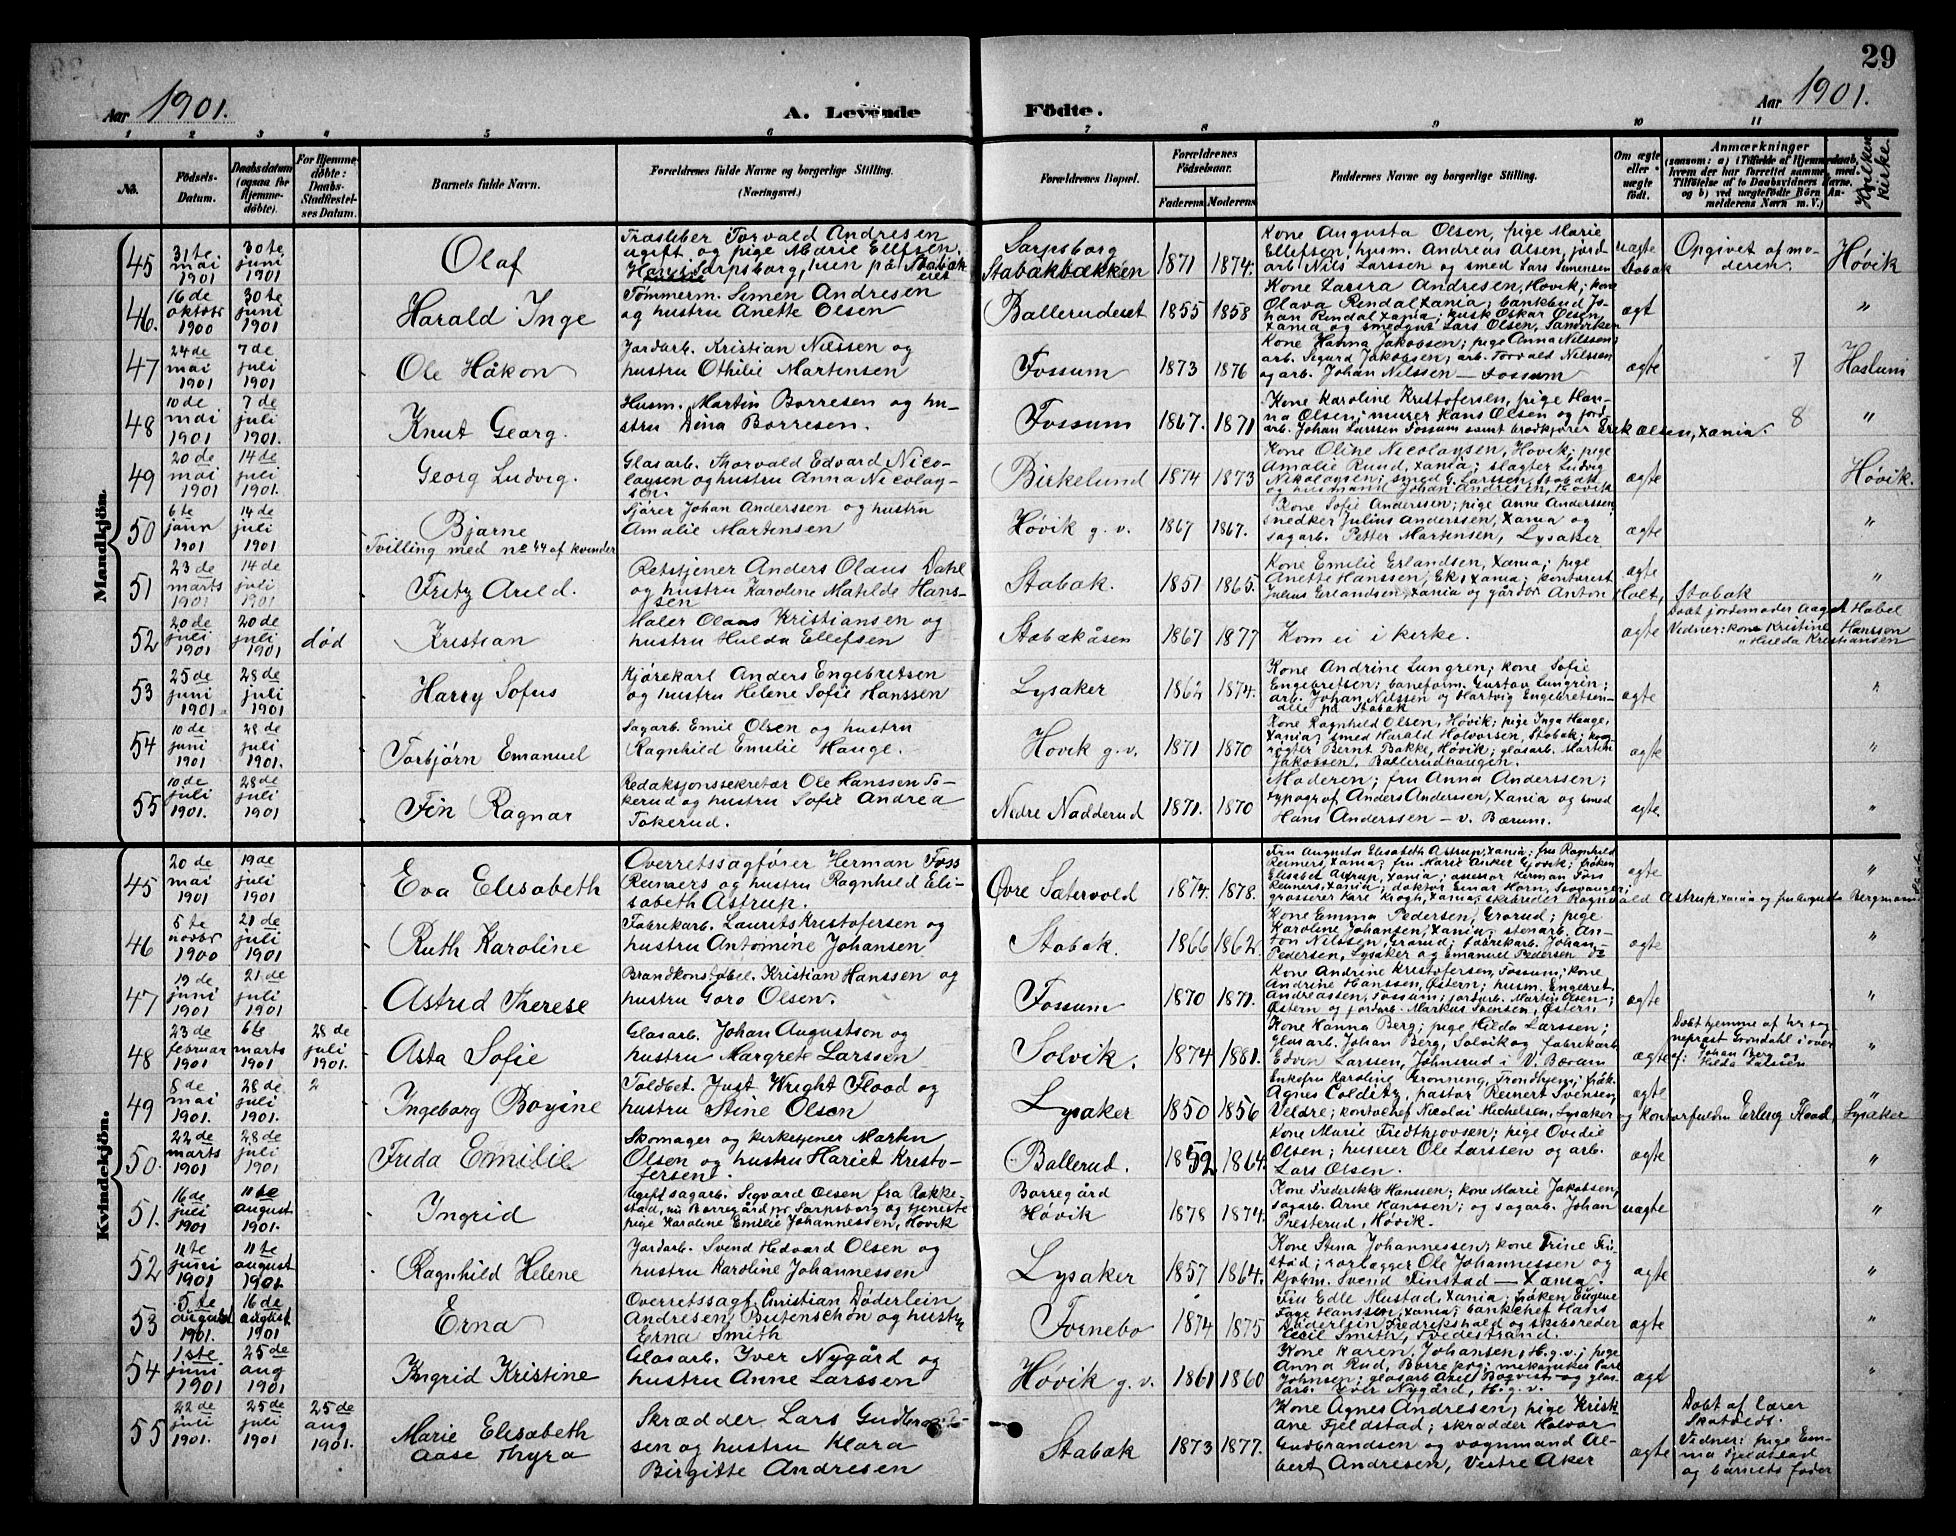 29
Aar 1901.
A. Levende Födte.
Aar 1901.
1 2 3 4 5 6 7 8 9 10 11
No.
Födsels-Datum.
Daabsdatum (ogsaa for Hjemmedöbte).
For Hjemmedöbte: Daabs-Stadfæstelses Datum.
Barnets fulde Navn.
Forældrenes fulde Navne og borgerlige Stilling. (Næringsvei.)
Forældrenes Bopæl.
Forældrenes Födselsaar.
Faderens Moderens
Faddernes Navne og borgerlige Stilling.
Om ægte eller uægte födt.
Anmærkninger
(saasom: a) i Tilfælde af Hjemmedaab, hvem der har forrettet samme, med Tilföielse af to Daabsvidners Navne, og b) ved uægtefödte Börn Anmelderens Navn m. V.)
Hvilken kirke
Mandkjön.
45 31te mai 1901 30te juni 1901 Olaf
Træsliber Torvald Andresen
ugift og pige Marie Ellefsen.
Han i Sarpsborg, hun på Stabæk
Sarpsborg
Stabækbækken 1871 1874.
Kone Augusta Olsen, pige Marie
Ellefsen, husm. Andreas Olsen, jord-
arb. Nils Larssen og smed Lars Simensen
uægte Stabæk Opgivet af moderen. Høvik
46. 16de oktobr 1900 30te juni 1901 Harald Inge
Tømmerm. Simen Andresen
og hustru Anette Olsen
Ballerudeiet 1855 1858
Kone Laura Andresen, Høvik; kone
Olava Rendal Xania; bankbud Jo-
han Rendal Xania; kusk Oskar Olsen,
Xania og smedgut Lars Olsen, Sandviken
ægt "
47 24de mai 1901 7de juli 1901 Ole Håkon
Jordarb. Kristian Nilssen og
hustru Othilie Martensen
Fossum 1873 1876
Kone Hanna Jakobsen; pige Anna Nilssen;
arb. Sigurd Jakobsen; arb. Torvald Nilssen
og arb. Johan Nilssen — Fossum
ægte 7 Haslum
48 10de mai 1901 7de juli 1901. Knut Georg.
Husm. Martin Borresen og hu-
stru Dina Borresen.
Fossum 1867. 1871
Kone Karoline Kristofersen, pige Han-
na Olsen; murer Hans Olsen og jord-
arb. Johan Larssen Fossum samt brødkjører Erik Olsen, Xania. 8 "
49 20de mai 1901 14de juli 1901. Georg Ludvig.
Glasarb. Thorvald Edvard Nico-
laysen og hustru Anna Nicolay-
sen.
Birkelund 1874 1873
Kone Oline Nicolaysen, Høvik; pige
Amalie Rund, Xania; slagter Ludvig
Nikolaysen; smed G. Larssen, Stabæk
og husmand Johan Andresen, Høvik
ægte Høvik.
50 6te janr 1901 14de juli 1901 Bjarne
Tvilling med no 44 af kvinder
Fjører Johan Anderssen og hustru
Amalie Martensen
Høvik g. v. 1867 1867.
Kone Sofie Anderssen; pige Anne Anderssen
snedker Julius Anderssen, Xania og
sagarb. Petter Martensen, Lysaker
ægte "
51 23de marts 1901 14de juli 1901 Fritz Arild.
Retstjener Anders Olaus Dahl
og hustru Karoline Matilde Hans-
sen
Stabæk. 1851 1865.
Kone Emilie Erlandsen, Xania; pige
Anette Hanssen, Ek, Xania; kontorist
Julius Erlandsen, Xania og gårdbr Anton Holt, Stabæk
ægte "
52 20de juli 1901 20de juli 1901 død Kristian
Maler Olaus Kristiansen og
hustru Hulda Ellefsen
Stabækåsen 1867 1877
Kom ei i kirke.
ægte
Døbt jordemoder Aagot Habel
Vidner: kone Kristine Hanssen
" Hilda Kristiansen
53 25de juni 1901 28de juli 1901 Harry Sofus
Kjørekarl Anders Engebretsen
og hustru Helene Sofie Hanssen
Lysaker 1862 1874.
Kone Andrine Lungren; kone Sofie
Engebretsen; baneform. Gustav Lungren;
arb. Johan Nilssen og Hartvig Engebretsen—
alle på Stabæk
ægte "
54 10de juni 1901 28de juli 1901. Torbjørn Emanuel
Sagarb. Emil Olsen og hustru
Ragnhild Emilie Hauge.
Høvik g.v. 1871 1870
Kone Ragnhild Olsen, Høvik; pige Inga Hauge,
Xania; smed Harald Halvorsen, Stabæk;
røgter Bernt Bakke, Høvik; glasarb. Martin
Jakobsen, Ballerudhaugen.
ægte "
55 10de juli 1901. 28de juli 1901 Fin Ragnar
Redaksjonssekretær Ole Hanssen To-
kerud og hustru Sofie Andrea
Tokerud.
Nedre Nadderud 1871. 1870
Moderen; fru Anna Anderssen;
typograf Anders Anderssen, Xania og smed
Hans Anderssen — v. Bærum.
ægte. "
Kvindekjön.
45 20de mai 1901 19de juli 1901 Eva Elisabeth
Overretssagfører Herman Foss
Reimers og hustru Ragnhild Eli-
sabeth Astrup.
Øvre Sætervold 1874. 1878.
Fru Augusta Elisabeth Astrup, Xania; fru Ragnhild
Reimers, Xania; fru Marie Anker Gjøvik; frøken
Elisabet Astrup, Xania; assessor Herman Foss
Reimers, Xania; doktor Einar Horn, Stavanger;
grosserer Kare Krogh, Xania, skibsreder Ragnvald Astrup, Xania og fru Augusta Bergmann
ægte "
46 5te novbr 1900 21de juli 1901 Ruth Karoline
Fabrikarb. Laurits Kristofersen og
hustru Antomine Johansen
Stabæk. 1866 1862.
Kone Emma Pedersen, Grorud; pige
Karoline Johansen, Xania; stenarb. An-
ton Nilssen, Grorud; fabrikarb. Johan
Pedersen, Lysaker og Emanuel Pedersen do
ægte "
47 19de juni 1901 21de juli 1901 Astrid Therese
Brandkonstabel. Kristian Hanssen og
hustru Goro Olsen.
Fossum 1870 1871.
Kone Andrine Kristofersen, Fossum; kone
Andrine Hanssen, Østern; husm. Engebret
Andreassen, Fossum; jordarb. Martin Olsen;
Østern og jordarb. Markus Svensen, Østern
ægte "
48 23de februar 1901 6te marts 1901 28de juli 1901. Asta Sofie
Glasarb. Johan Augustson og
hustru Margrete Larssen
Solvik. 1874 1881.
Kone Hanna Berg; pige Hilda Larssen;
glasarb. Johan Berg, Solvik og fabrikarb.
Edvin Larsen, Johnsrud i V. Bærum
ægte
Døbt hjemme af hr sog-
neprest Grøndahl i over
af: Johan Berg og
Hilda Larssen "
49 8de mai 1901. 28de juli 1901. 2 Ingeborg Boyine
Toldbet. Just Wright Flood og
hustru Stine Olsen
Lysaker 1850 1856
Enkefru Karoline Grønning, Trondhjem; frøk.
Agnes Colditz, pastor Reinert Svensen,
Veldre; kontorchef Nicolai Michelsen, Lysaker og kontorfuldm Erling Flood, Lysaker
ægte "
50. 22de marts 1901 28de juli 1901 Frida Emilie
Skomager og kirketjener Martin
Olsen og hustru Hariet Kristo-
fersen.
Ballerud. 1852 1864.
Kone Marie Fredthjovsen; pige Ovidie
Olsen; huseier Ole Larssen og arb.
Lars Olsen.
ægte "
51. 16de juli 1901 11te august 1901. Ingrid
Ugift sagarb. Sigvard Olsen fra Rakke-
stad, nu Borregård pr Sarpsborg og tjeneste
pige Karoline Emilie Johannessen, Høvik
Borregård
Høvik 1878 1874.
Kone Frederikke Hanssen; kone Marie Jakobsen,
sagarb. Arne Hanssen; og sagarb. Johan
Presterud, Høvik.
uægte "
52 11te juni 1901 11te august 1901. Ragnhild Helene
Jordarb. Svend Hedvard Olsen og
hustru Karoline Johannessen
Lysaker 1857 1864.
Kone Stina Johannessen, kone Trine Fin-
stad; rørlegger Ole Johannessen og
kjøbm. Svend Finstad — Xania.
ægte "
53 5te august 1901. 16de august 1901 Erna
Overretssagf. Christian Døderlein
Andresen Butenschøn og hustru
Erna Smith
Fornebo 1874 1875
Fru Edle Mustad, Xania; frøken Eugene
Faye Hanssen, Xania; bankchef Hans
Døderlein Fredrikshald og skibsreder
Cecil Smith, Tvedestrand.
ægte "
54 1ste juni 1901 25de aug 1901 Ingrid Kristine
Glasarb. Iver Nygård og
hustru Anne Larssen
Høvik g. v. 1861 1860
Kone Karen Johansen, H.g.v.; pige
Anna Rud, Borre pgj; mekaniker Carl
Johnsen; glasarb Axel Bogvist og glas-
arb. Iver Nygård, H.g.v.
ægt "
55 22de juli 1901. 25de juli 1901 25de aug 1901. Marie Elisabeth
Aase Thyra
Skrædder Lars Gudbrand-
sen og hustru Klara
Birgitte Andresen
Stabæk 1873 1877.
Kone Agnes Andresen; pige Krist-
ane Fjeldstad; skrædder Halvor
Gudbrandsen og vognmand Al-
bert Andresen, Vestre Aker
ægte
Døbt af lærer
Skatvedt.
Vidner: pige Em-
ma Fjeldstad
og barnets fader